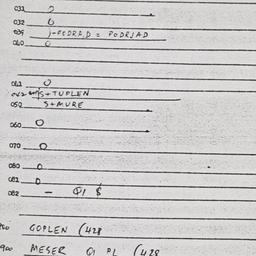 031 0
032 0
039 )-PODRAD = PODRJAD
040 0
041 0
042 S+TUPLEN
052 S+MURE
060 0
070 0
080 0
081 0
082 —
GOPLEN (428
900 MESER PL (428